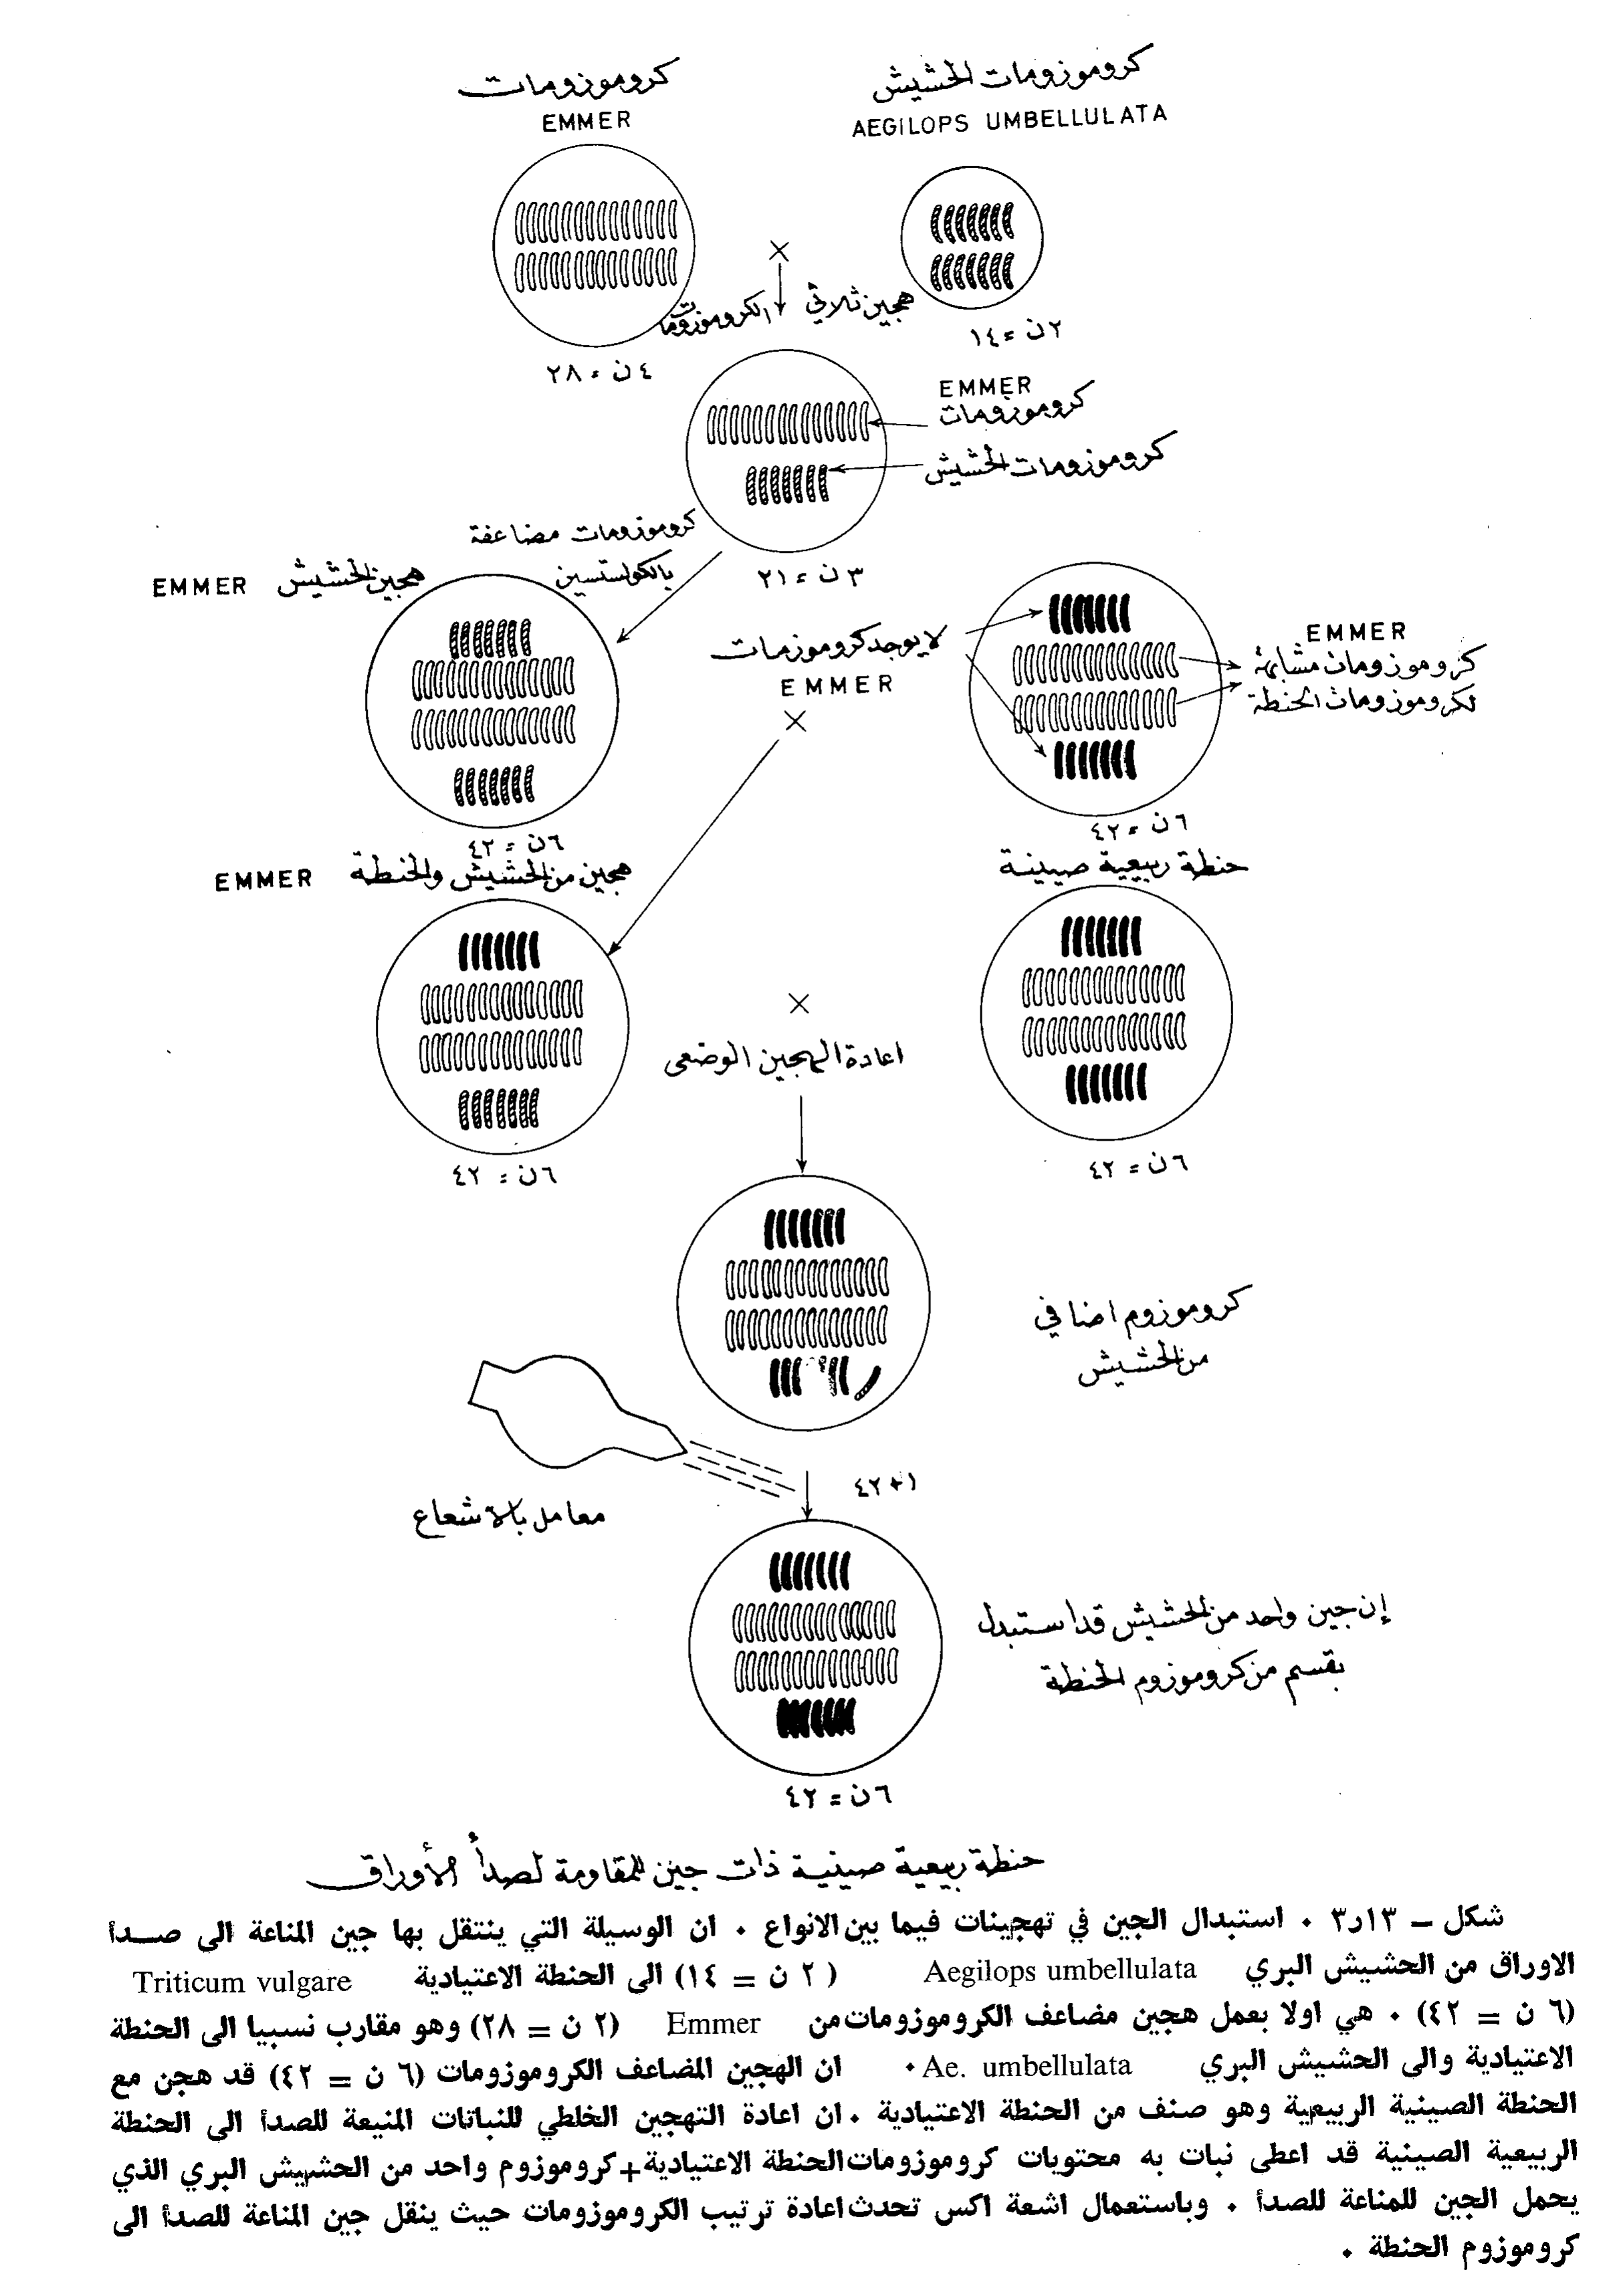 كروموزومات
EMMER
كروموزومات الحشيش
AEGILOPS UMBELLULATA
٤ن = ٢٨
هجين ثلاثي الكروموزومات
٢ن = ١٤
EMMER
كروموزومات
كروموزومات الحشيش
٣ن = ٢١
كروموزومات مضاعفة
بالكولستسين
هجين الحشيش EMMER
لا يوجد كروموزمات
EMMER
EMMER
كروموزومات مشابهة
لكروموزومات الحنطة
٦ن = ٤٢
٦ن = ٤٢
هجين من الحشيش والحنطة EMMER
حنطة ربيعية صينية
اعادة الهجين الوضعى
٦ن = ٤٢
٦ن = ٤٢
كروموزوم اضافي
من الحشيش
٤٢+١
معامل بالاشعاع
إن جين واحد من الحشيش قد استبدل
بقسم من كروموزوم الحنطة
٦ن = ٤٢
حنطة ربيعية صينية ذات جين للمقاومة لصدأ الأوراق
شكل – ١٣ر٣ . استبدال الجين في تهجينات فيما بين الانواع . ان الوسيلة التي ينتقل بها جين المناعة الى صدأ
الاوراق من الحشيش البري Aegilops umbellulata ( ٢ ن = ١٤) الى الحنطة الاعتيادية Triticum vulgare
(٦ ن = ٤٢) . هي اولا بعمل هجين مضاعف الكروموزومات من Emmer (٢ ن = ٢٨) وهو مقارب نسبيا الى الحنطة
الاعتيادية والى الحشيش البري Ae. umbellulata . ان الهجين المضاعف الكروموزومات (٦ ن = ٤٢) قد هجن مع
الحنطة الصينية الربيعية وهو صنف من الحنطة الاعتيادية . ان اعادة التهجين الخلطي للنباتات المنيعة للصدأ الى الحنطة
الربيعية الصينية قد اعطى نبات به محتويات كروموزومات الحنطة الاعتيادية + كروموزوم واحد من الحشيش البري الذي
يحمل الجين للمناعة للصدأ . وباستعمال اشعة اكس تحدث اعادة ترتيب الكروموزومات حيث ينقل جين المناعة للصدأ الى
كروموزوم الحنطة .